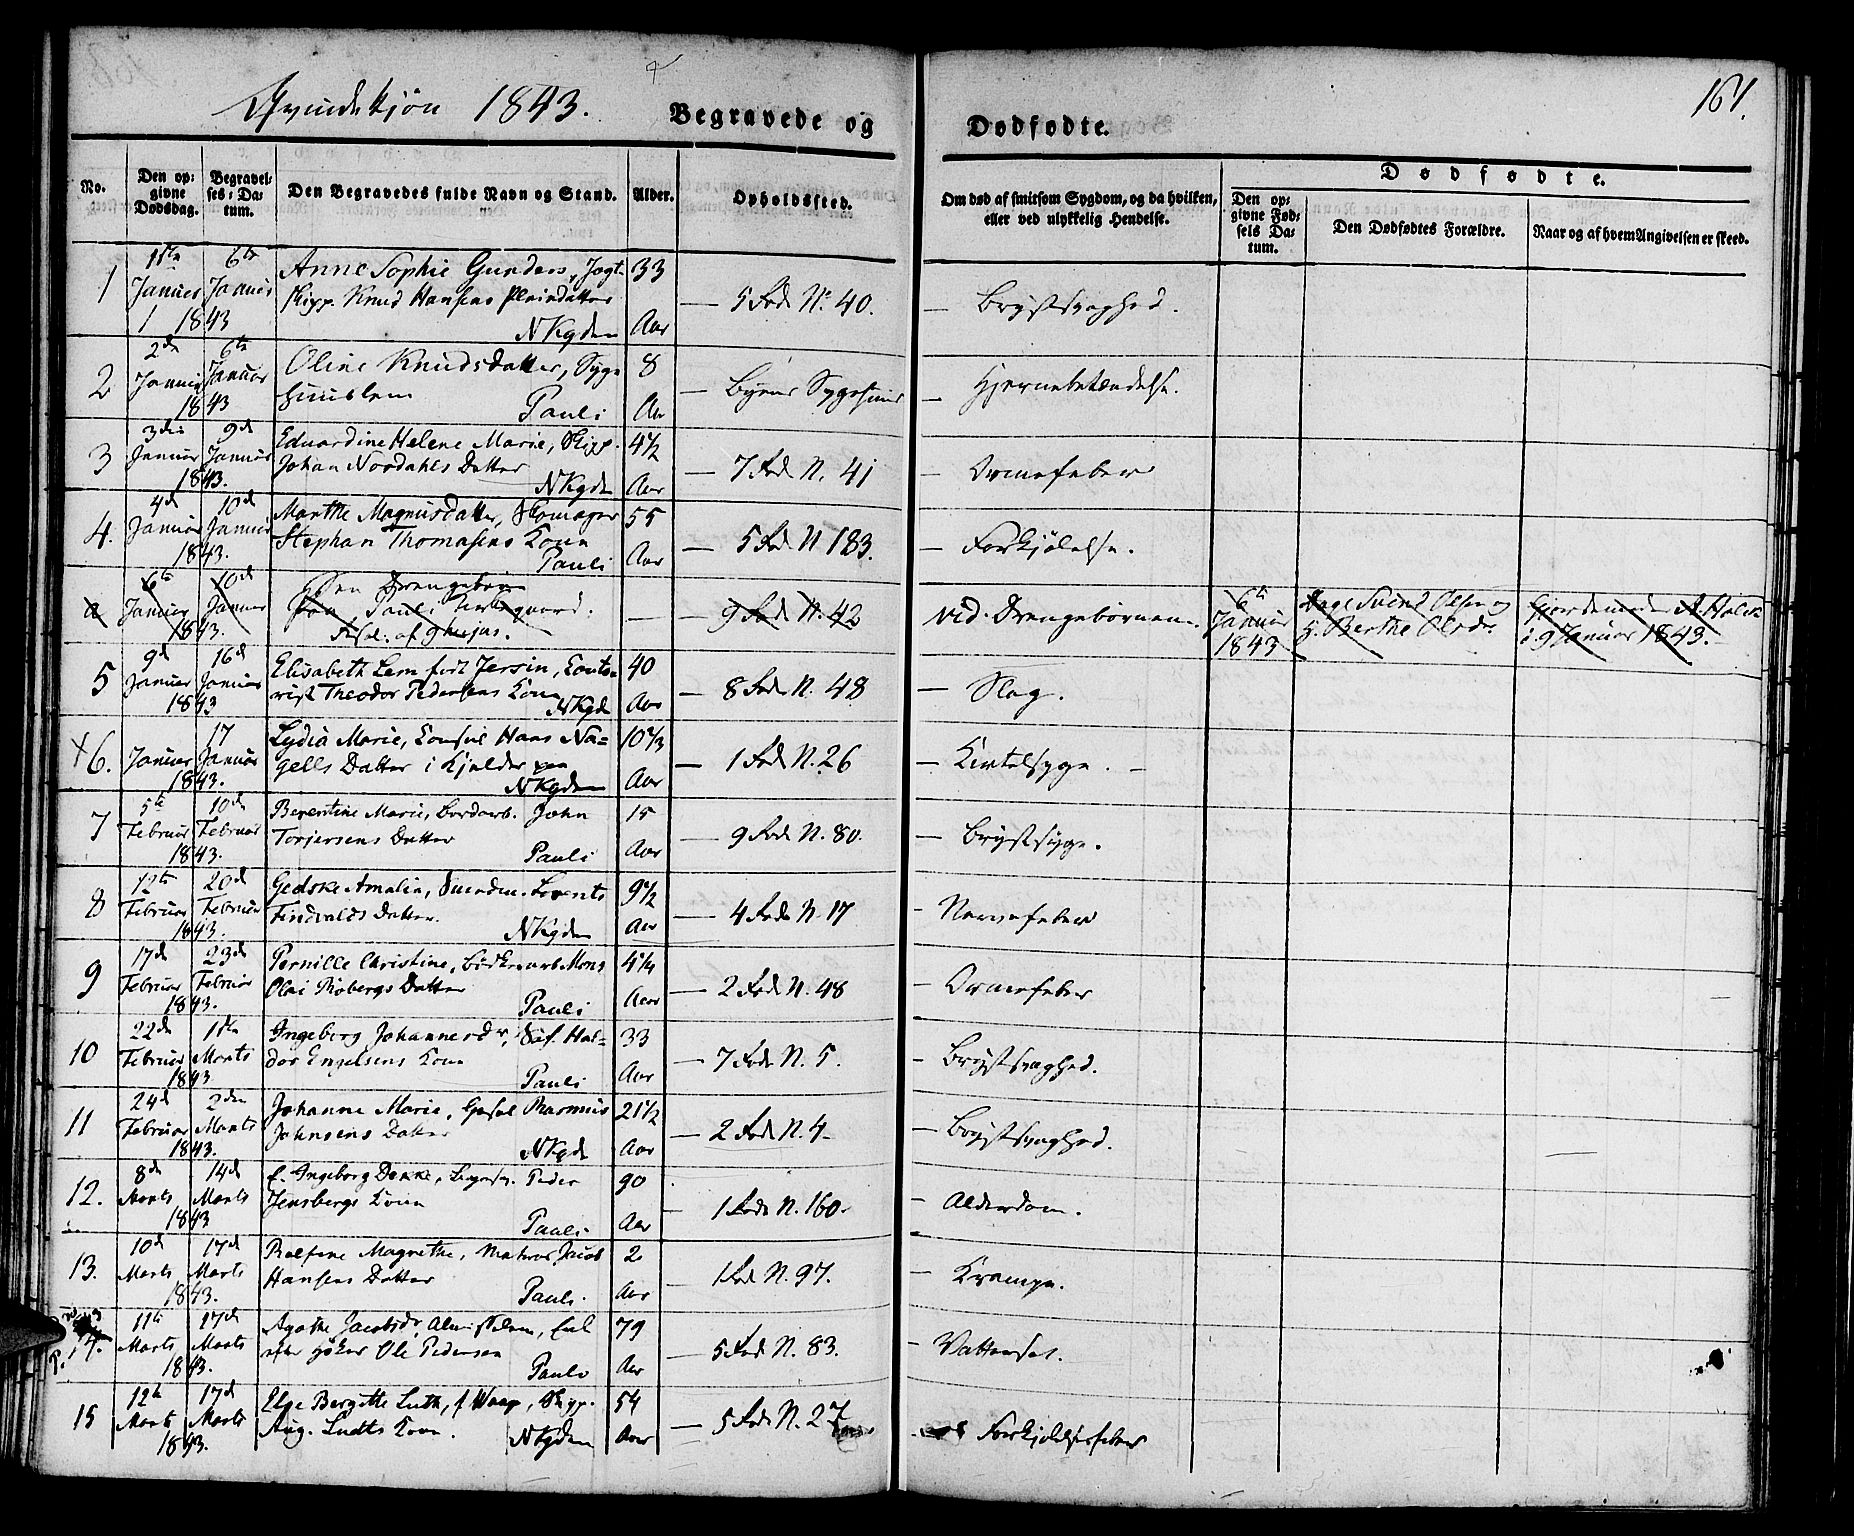 Qvindekjøn 1843.
Begravede og Dødfødte.
161.
No.
Den opgivne Dødsdag.
Begravelses-Datum.
Den Begravedes fulde Navn og Stand.
Alder.
Opholdssted.
Om død af smitsom Sygdom, og da hvilken, eller ved ulykkelig Hendelse.
Dødfødte.
Den opgivne Fødsels Datum.
Den Dødfødtes Forældre.
Naar og af hvem Angivelsen er skeed.
1 1ste Januar 1843 6te Januar Anne Sophie Gunders, Jagt- 33 Aar
Skipp. Knud Hansens Pleiedatter
NKgden
— 5 Rode N. 40. — Brystsvaghed.
2 2de Januar 1843 6te Januar Oline Knudsdatter, Syge 8 Aar
huuslem
Pauli
— Byens Sygehuus — Hjernebetændelse.
3 3die Januar 1843. 9de Januar Eduardine Helene Marie, Skipp. 4½ Aar
Johan Nordahls Datter
NKgden
— 7 Rode N. 41 — Ormefeber
4. 4de Januar 1843. 10de Januar Marthe Magnusdatter, Skomager 55 Aar
Stephan Thomasens Kone
Pauli
— 5 Rode N 183. — Forkjølelse.
a 6te Januar 1843. 10de Januar Den Drengebørn
Pauli Kirkegaard.
— 9 Rode N. 42 vid. Drengebørnene 6te Januar 1843 Svend Olsen og Berthe Olsdr. Gjordemoder A. Holck
i 9 Januar 1843.
5 9de Januar 1843 16de Januar Elisabeth Lem født Jersin, Conto- 40 Aar
rist Theodor Pedersens Kone
NKgde
— 8 Rode N. 48 — Slag.
+6. Januar 1843. 17 Januar Lydia Marie, Consul Hans Na- 10⅔ Aar
gells Datter i Kjelder paa
NKgden
— 1 Rode N. 26 — Kirtelsyge. —
7 5te Februar 1843. 10de Februar Berentine Marie, Bordarb. John 15 Aar
Torjersens Datter
Pauli
— 9 Rode N. 80. — Brystsyge.
8 12te Februar 1843. 20de Februar Gedske Amalia, Lorents 9½ Aar
Findvalds Datter.
NKgden
— 4 Rode N. 17 — Nervefeber
9 17de Februar 1843. 23de Februar Pernille Christine, Bødkersarb Mons 4¼ Aar
Olai Robergs Datter
Pauli
— 2 Rode N. 48 — Ormefeber
10 22de Februar 1843 1ste Marts Ingeborg Johannesdr, Hal- 33 Aar
dor Engelsens Kone
Pauli
— 7 Rode N. 5. — Brystsvaghed.
11 24de Februar 1843. 2den Marts Johanne Marie, Rasmus 21½ Aar
Johnsens Datter
NKgde
— 2 Rode N. 4. — Brystsvaghed.
12. 8de Marts 1843 14de Marts Ingeborg Dekke, Peder 90 Aar
Jensbergs Kone
Pauli
— 1 Rode N. 160. — Alderdom.
13. 10de Marts 1843. 17de Marts Rolfine Magrethe, Matros Jacob 2 Aar
Hansens Datter
Pauli.
— 1 Rode N. 97. — Krampe.
14. 11te Marts 1843. 17de Marts Agathe Jacobsdr, Enke 79 Aar
efter Høker Ole Pedersen
Pauli
— 5 Rode N. 83. — Vattersot.
15 12te Marts 1843. 17de Marts Else Bergitte Luth, f. Waage, Skipp. 54 Aar
Aug. Ludts Kone.
NKgden
— 5 Rode N. 27 Forkjølelsesfeber